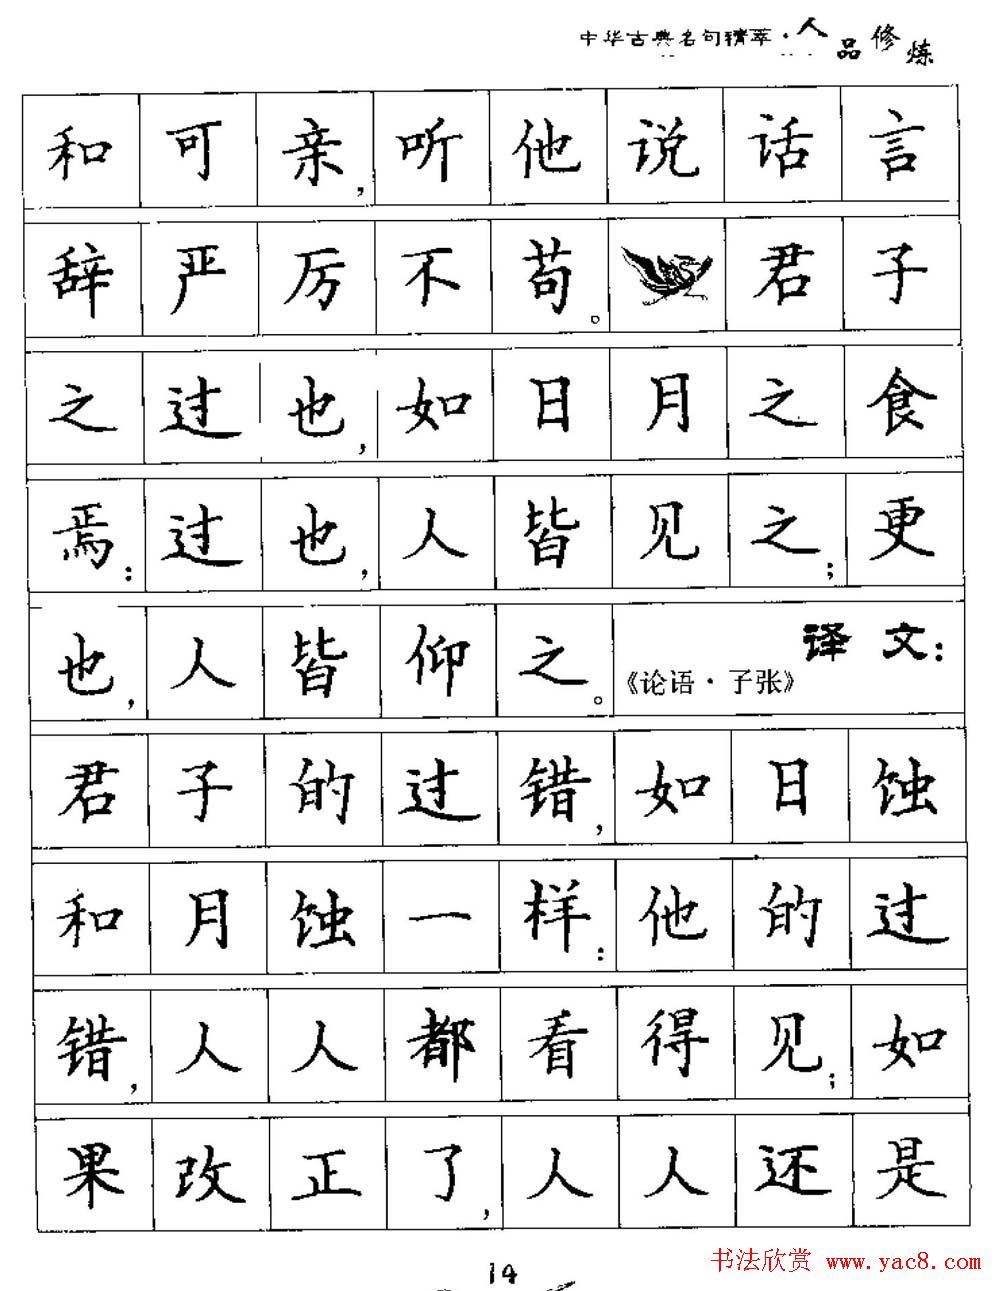 中华古典名句精萃·人品修炼
和可亲，听他说话言
辞严厉不苟。君子
之过也，如日月之食
焉：过也，人皆见之；更
也，人皆仰之。《论语·子张》译文：
君子的过错，如日蚀
和月蚀一样：他的过
错，人人都看得见；如
果改正了，人人还是
14
书法欣赏 www.yac8.com